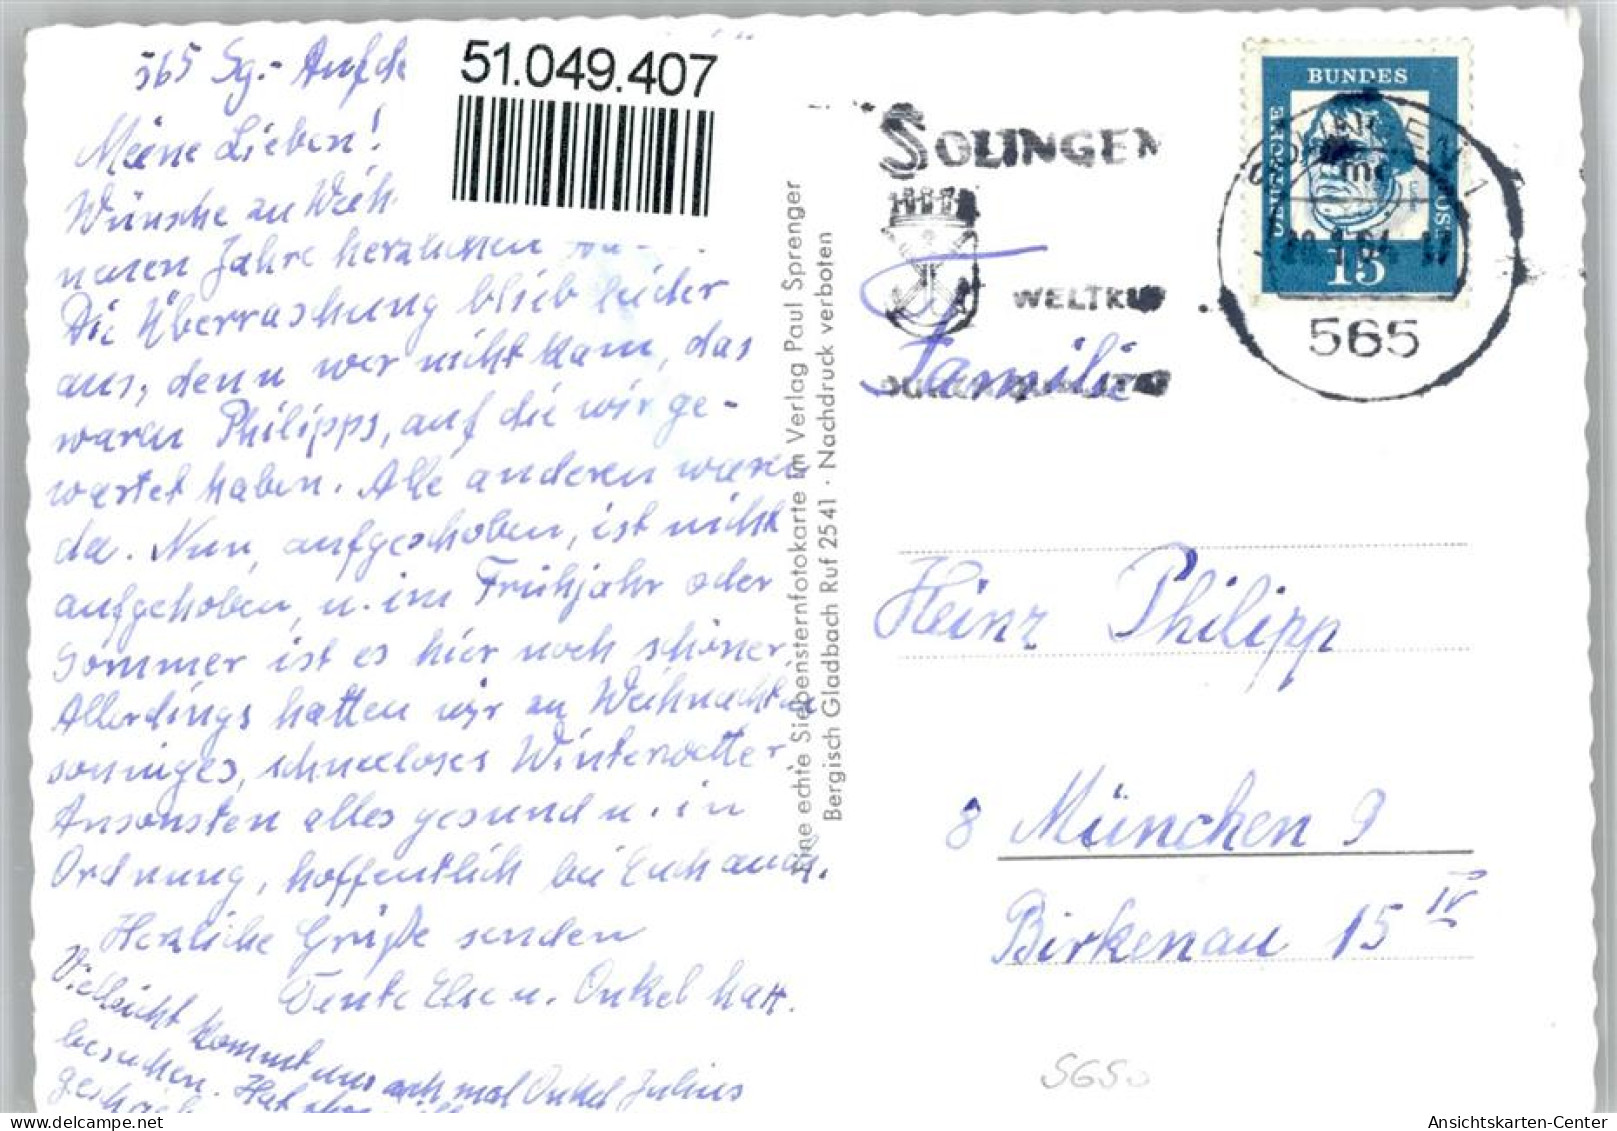 565 Sg.- Aufde
51.049.407
Meine Lieben!
Wünsche zu Weih
neuen Jahre herzlichen
Die Überraschung blieb leider
aus, denn wer nicht kam, das
waren Philipps, auf die wir ge-
wartet haben. Alle anderen waren
da. Nun, aufgeschoben, ist nicht
aufgehoben, u. im Frühjahr oder
Sommer ist es hier noch schöner
Allerdings hatten wir zu Weihnachten
sonniges, schneeloses Winterwetter
Ansonsten alles gesund u. in
Ordnung, hoffentlich bei Euch auch.
Herzliche Grüße senden
Tante Else u. Onkel
Vielleicht kommt uns auch mal Onkel Julius
besuchen. Hat
Eine echte Siebensternfotokarte im Verlag Paul Sprenger
Bergisch Gladbach Ruf 2541 · Nachdruck verboten
SOLINGEN
WELTRUF
DURCH QUALITÄT
DEUTSCHE
BUNDES
POST
15
SOLINGEN 1
565
Familie
Heinz Philipp
8 München 9
Birkenau 15 IV
5650
Ansichtskarten-Center